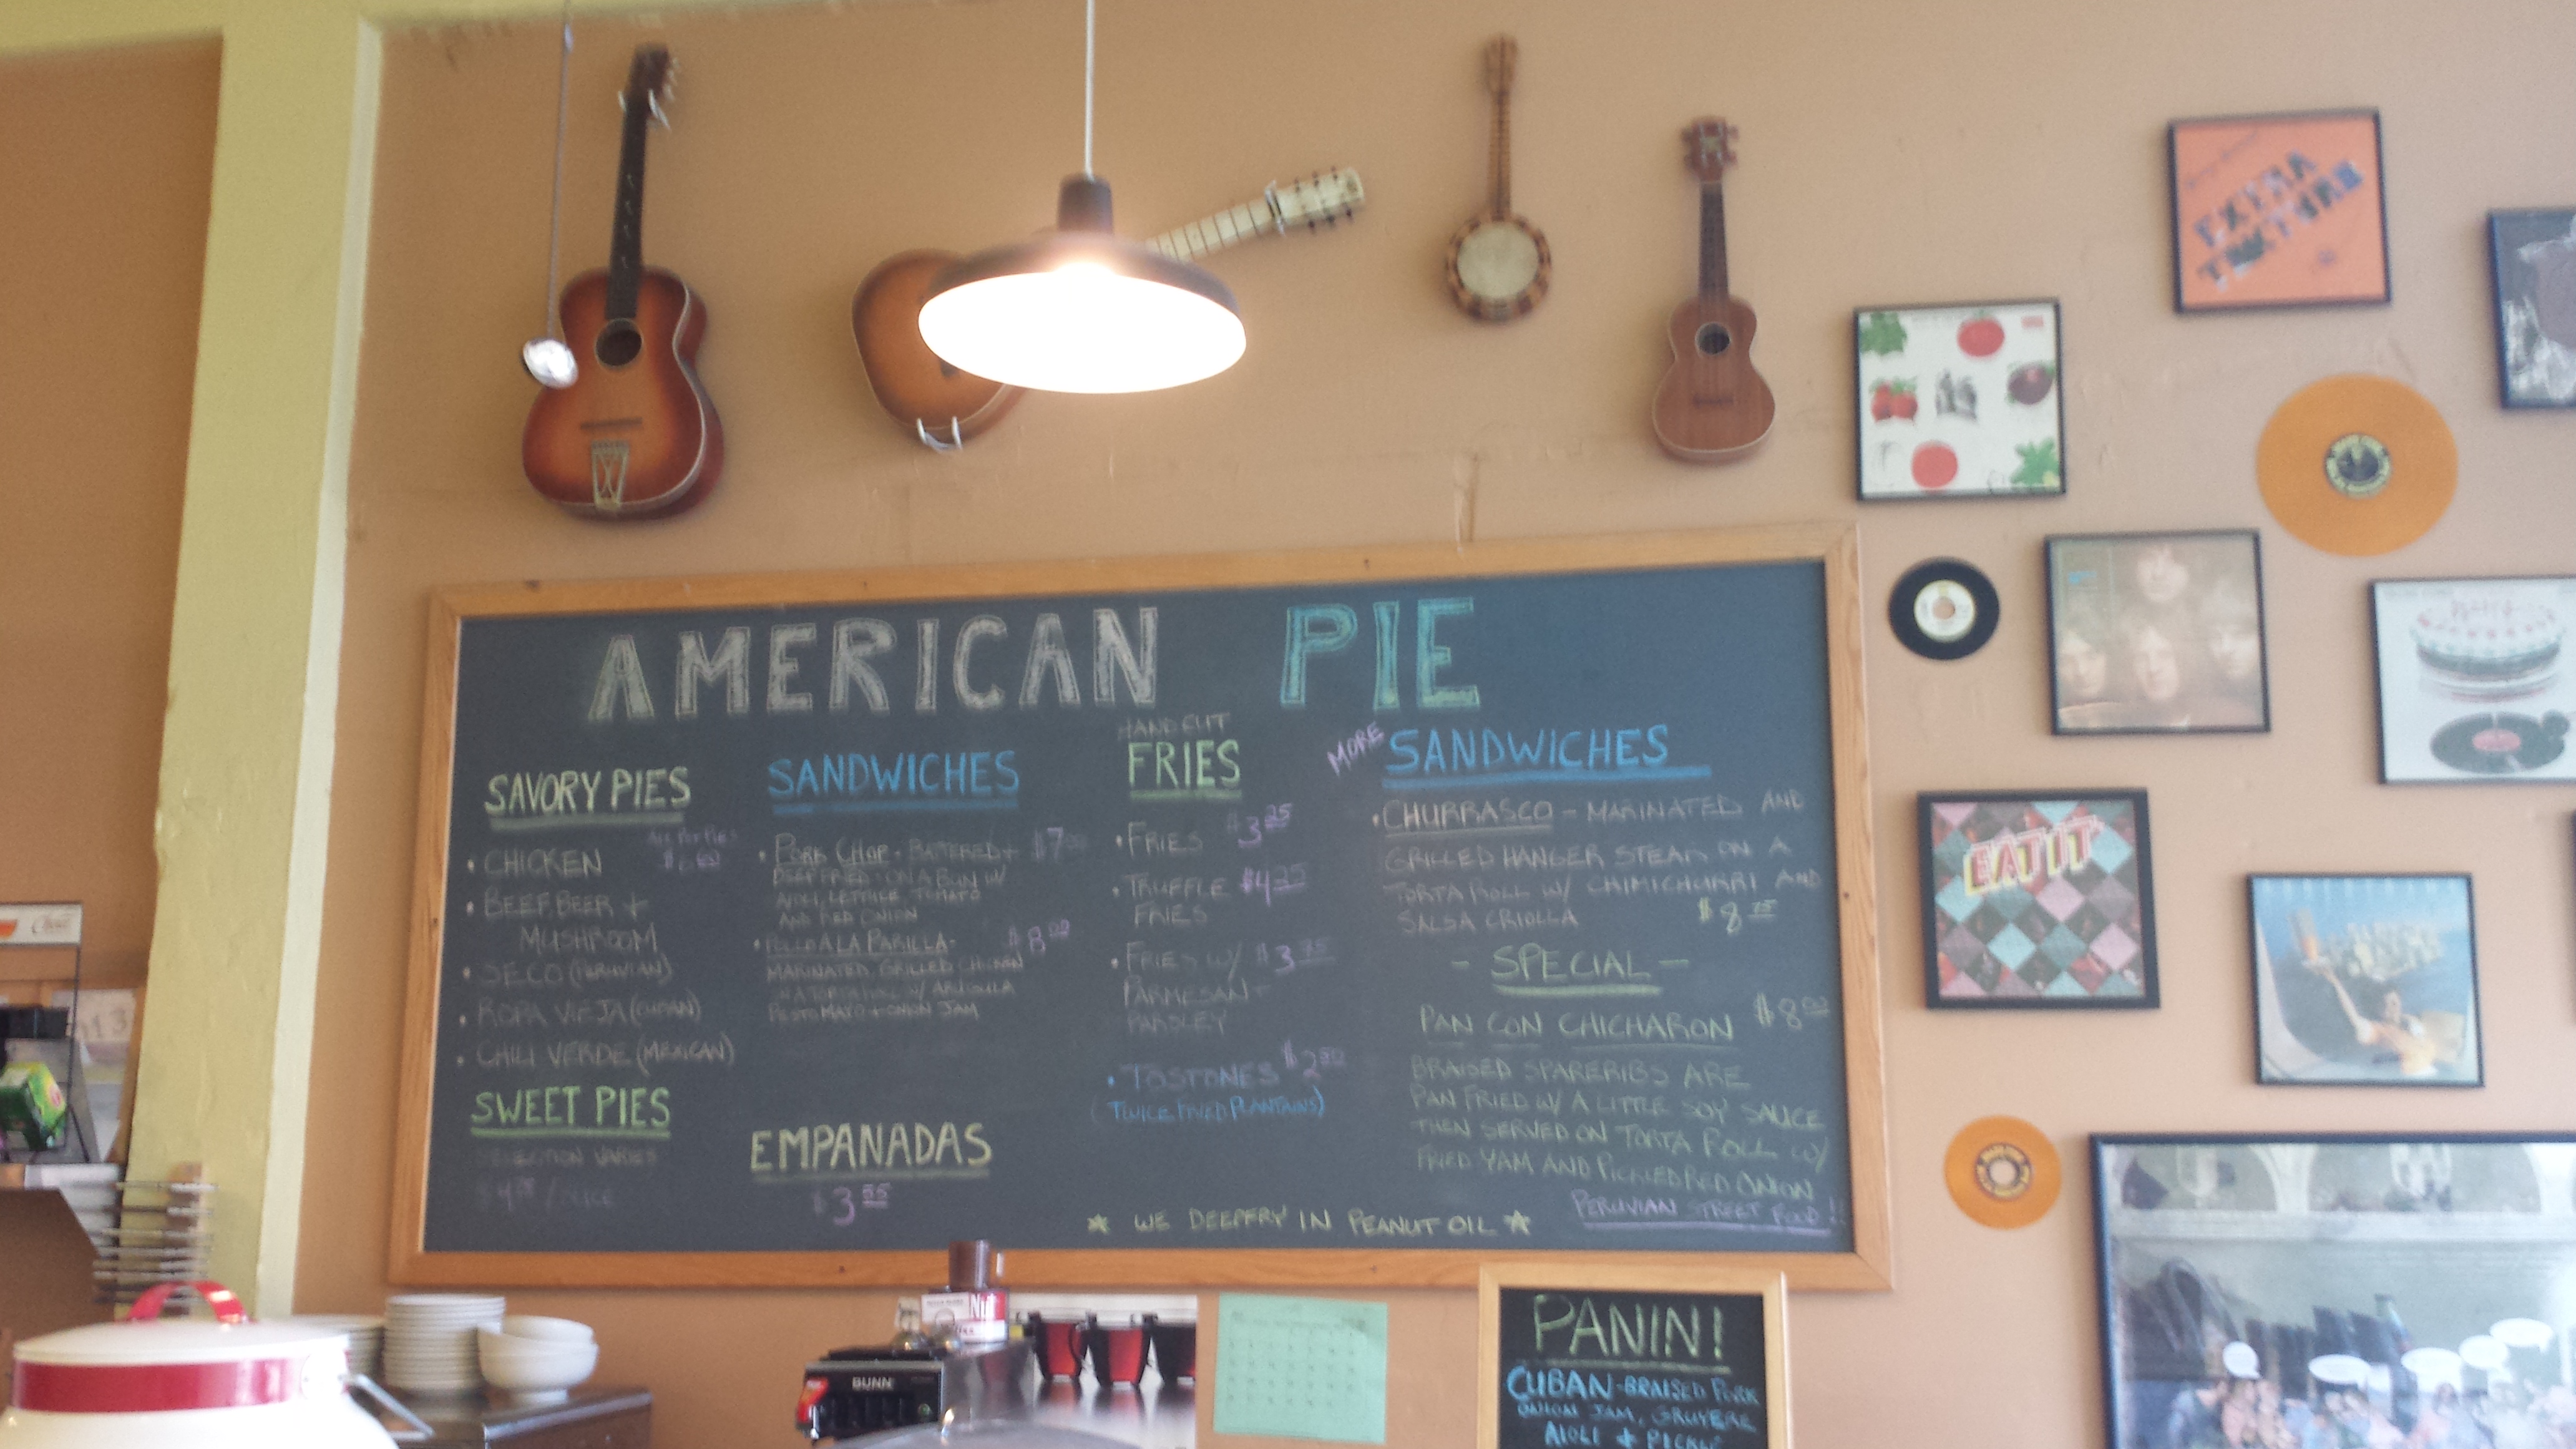 AMERICAN PIE
SAVORY PIES
ALL POT PIES
• CHICKEN
• BEEF, BEER +
MUSHROOM
• SECO (PERUVIAN)
• ROPA VIEJA (CUBAN)
• CHILI VERDE (MEXICAN)
SWEET PIES
SELECTION VARIES
/SLICE
SANDWICHES
• PORK CHOP - BATTERED + $7.00
DEEP FRIED - ON A BUN W/
AIOLI, LETTUCE, TOMATO
AND RED ONION
• POLLO A LA PARILLA - $8.00
MARINATED GRILLED CHICKEN
ON A TORTA ROLL W/ ARUGULA
PESTO MAYO + ONION JAM
EMPANADAS
$3.55
HAND CUT
FRIES
• FRIES $3.25
• TRUFFLE $4.25
FRIES
• FRIES W/ $3.75
PARMESAN +
PARSLEY
• TOSTONES $2.50
(TWICE FRIED PLANTAINS)
MORE SANDWICHES
• CHURRASCO - MARINATED AND
GRILLED HANGER STEAK ON A
TORTA ROLL W/ CHIMICHURRI AND
SALSA CRIOLLA $8.75
- SPECIAL -
PAN CON CHICHARON $8.00
BRAISED SPARERIBS ARE
PAN FRIED W/ A LITTLE SOY SAUCE
THEN SERVED ON TORTA ROLL W/
FRIED YAM AND PICKLED RED ONION
PERUVIAN STREET FOOD!!
☆ WE DEEPFRY IN PEANUT OIL ☆
PANINI
CUBAN - BRAISED PORK
ONION JAM, GRUYERE
AIOLI + PICKLE
BUNN
EAT IT
EXTRA
TEXTURE